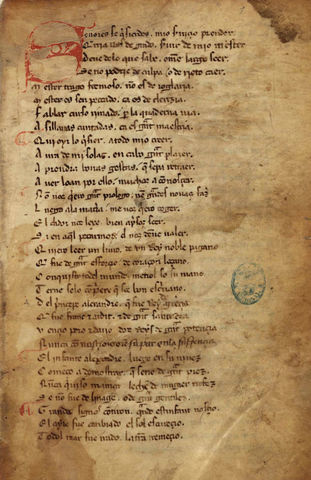 Señores se q̃sierdes mio seruiço prender
Querria uos de grado seruir de mio mester
Deue de lo que sabe ome largo seer
Se no podrie de culpa o de rieto caer
Mester trago fermoso nõ es de ioglaria
Mester es sen peccado ca es de clerezia
Fablar curso rimado p la quaderna uia
A sillauas cuntadas ca es grãt maestria
Qui oyr lo q̃sier a todo mio creer
Aura de mi solas en cabo grãt plazer
Aprendra bonas gestas q̃ sepa retraer
Auer loan por ello muchos a coñoscer
Nõ uos q̃ero grãt prologo nẽ grãdes nouas faz̃
Luego a la materia me uos q̃ero coger
El criador nos lexe bien apresos seer
Si en al pecarmos el nos deñe ualer
Quiero leer un liuro de un rey noble pagano
Que fue de grãt esforcio de coraçon loçano
Conquisto todel mundo metiol so su mano
Terne selo compere q̃ soe bon escriuano
Del prinçepe alexandre q̃ fue rey de greçia
Que fue franc e ardit e de grãt sabẽcia
Uençio poro e dario dos reys de grãt potencia
Nunca conosçio ome su par en la suffrençia
El infante alexandre luego en su niñez
Començo a demostrar q̃ serie de grãt prez
Nunca quiso mamar leche de mugier rafez
Se nõ fue de linage o de grãt gentilez
Grandes signos contiron q̃ndo est infant nasçio
El ayre fue cambiado el sol escureçio
Todol mar fue irado la tierra tremeçio